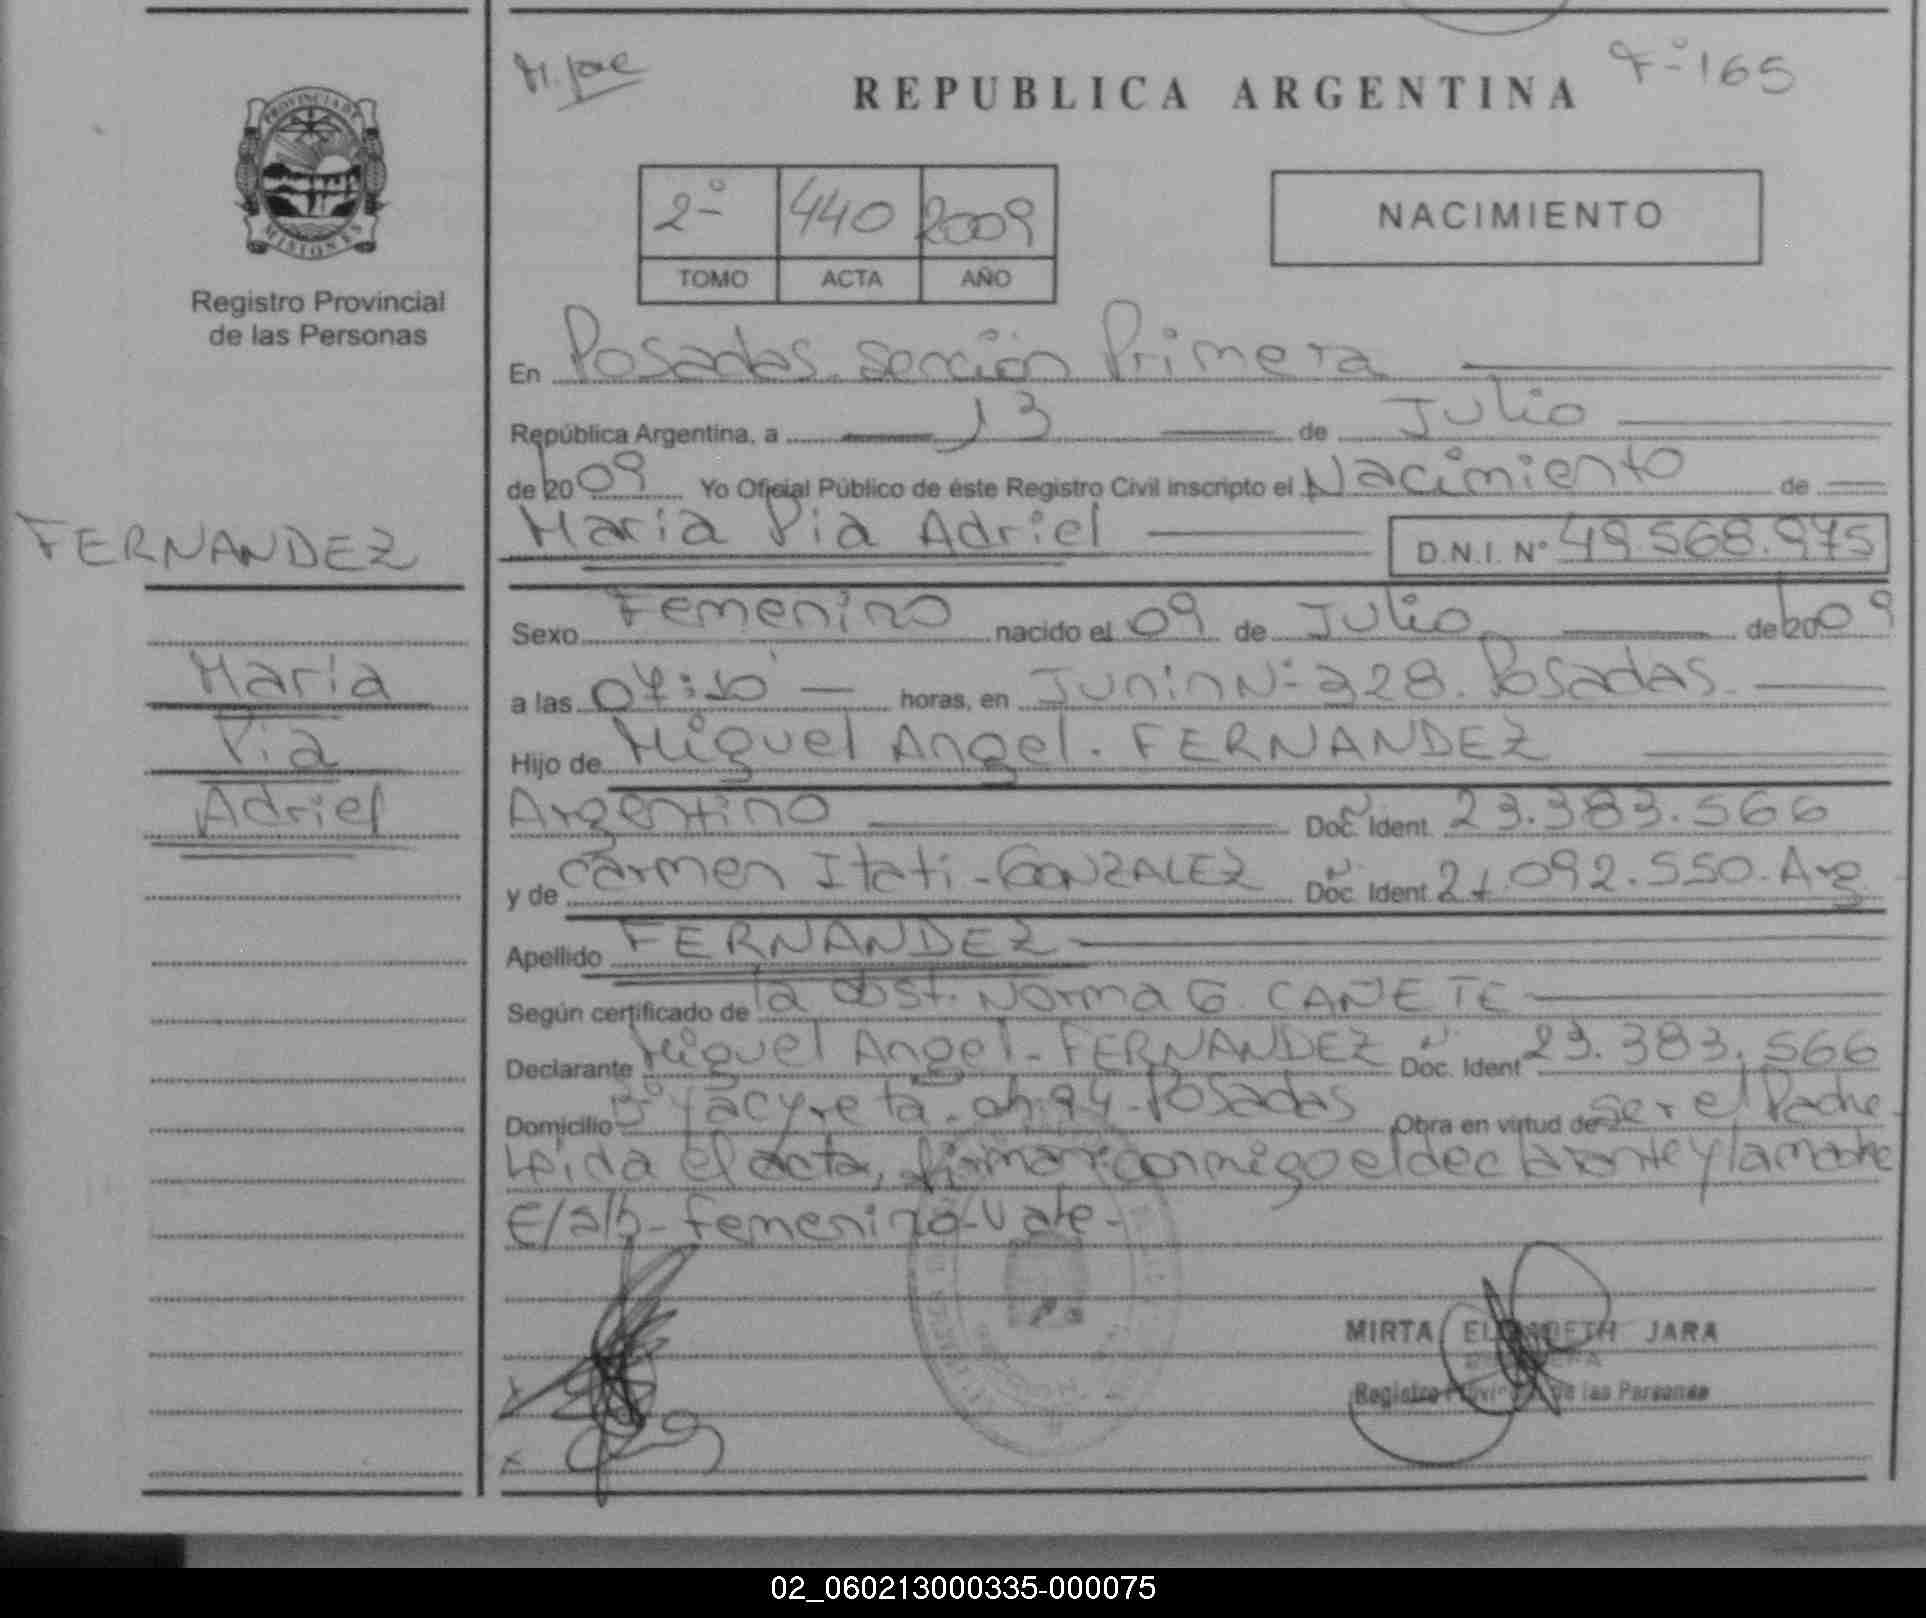 M. José
Fº 165
REPUBLICA ARGENTINA
PROVINCIA DE
MISIONES
Registro Provincial
de las Personas
2º 440 2009
TOMO ACTA AÑO
NACIMIENTO
En Posadas. sección Primera
República Argentina, a 13 de Julio
de 2009 Yo Oficial Público de éste Registro Civil inscripto el Nacimiento de
FERNANDEZ
María Pia Adriel
D.N.I. Nº 49.568.975
Sexo Femenino nacido el 09 de Julio de 2009
María
a las 07:10 horas, en Junin Nº 328. Posadas.
Pia
Hijo de Miguel Angel. FERNANDEZ
Adriel
Argentino Doc. Ident. 23.383.566
y de Carmen Itati - GONZALEZ Doc. Ident. 21.092.550. Arg.
Apellido FERNANDEZ
Según certificado de la obst. Norma G. CAÑETE
Declarante Miguel Angel. FERNANDEZ Doc. Ident 23.383.566
Domicilio Bº Yacyreta. ch. 94 - Posadas Obra en virtud de ser el Padre.
Leida el acta, firman conmigo el declarante y la madre
E/s/b - femenino - Vale -
MIRTA ELIZABETH JARA
Registro Provincial de las Personas
02_060213000335-000075